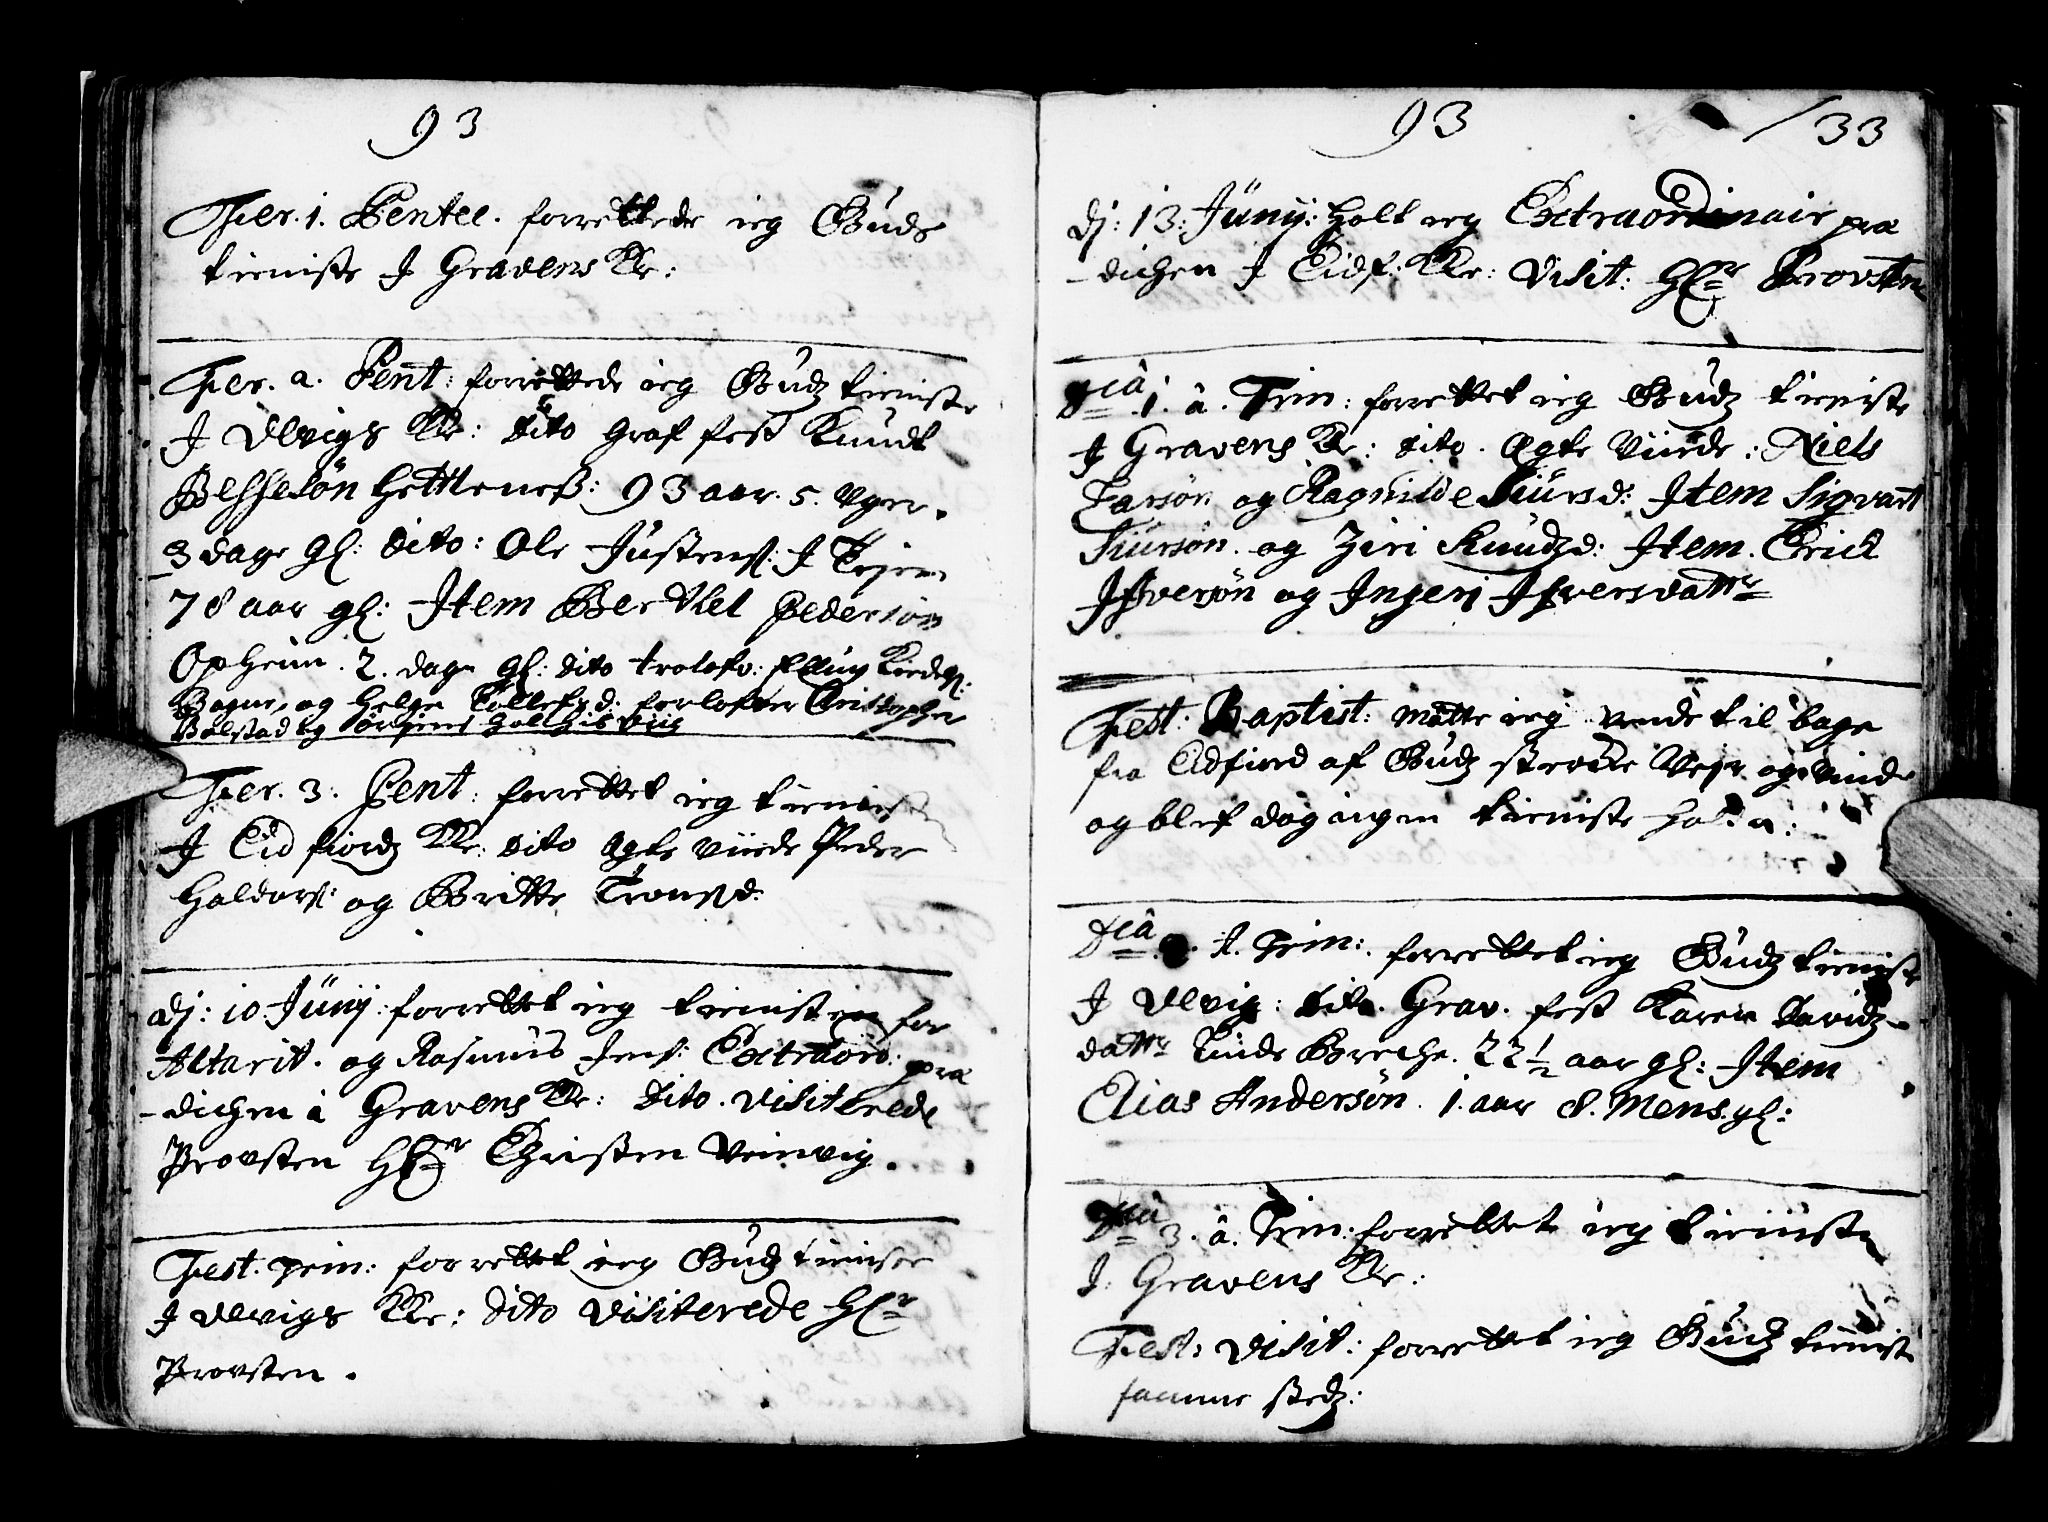 93
Fer. 1. Pentec. forrettede ieg Guds
tieniste J Gravens Kr:
Fer. 2. Pent: forrettede ieg Gudz tieniste
J Ulvigs Kr: dito Graf fest Knudt
Hettleneß: 93 aar. 5. uger.
3 dage gl: dito: Ole Justens: J
78 aar gl: Item Berthel Pedersøn
Opheim. 2. dage gl: dito trolofv:
og Helge Tollefzd: forlofver Christopher
Bolstad og
Fer. 3. Pent: forrettet ieg tienisten
J Eidfiordz Kr: dito Egte viide Peder
Haldors: og Britte Tronsd:
dj: 10 Junij: forrettet ieg tienisten for
Altarit. og Rasmus Jens: Extraord: præ
-dichen i Gravens Kr: dito. visiterede
Provsten Hr Christen Weinwig.
Fest. prin: forrettet ieg Gudz tieniste
J Ulvigs Kr: dito visiterede Hr
Provsten.
93 /33
dj: 13: Junij: holt ieg Extraordinair præ
-dichen J Eidf: Kr: visit: Hr Provsten
Dca 1. a. Trin: forrettet ieg Gudz tieniste
J Gravens Kr: dito. Egte viide: Niels
Larsøn og Ragnilde Siursd: Item Sigvart
Siursøn. og Ziri Knudzd: Item. Erick
Ifversøn og Ingeri Ifversdattr
Fest. Baptist: motte ieg vende til bage
fra Eidfiord af Gudz sterche Vejr og Vinde
og blef dog ingen tieniste holden:
Dca J. Trin: forrettet ieg Gudz tieniste
J Ulvig: dito. Grav. fest Karen Davidz-
dattr Linde Breche. 22 1/2 aar gl: Item
Elias Andersøn. 1. aar 8. Mens. gl:
Dca 3. a. Trin: forrettet ieg tieniste
J. Gravens Kr:
Fest: Visit: forrettet ieg Gudz tienist
samme stedz: